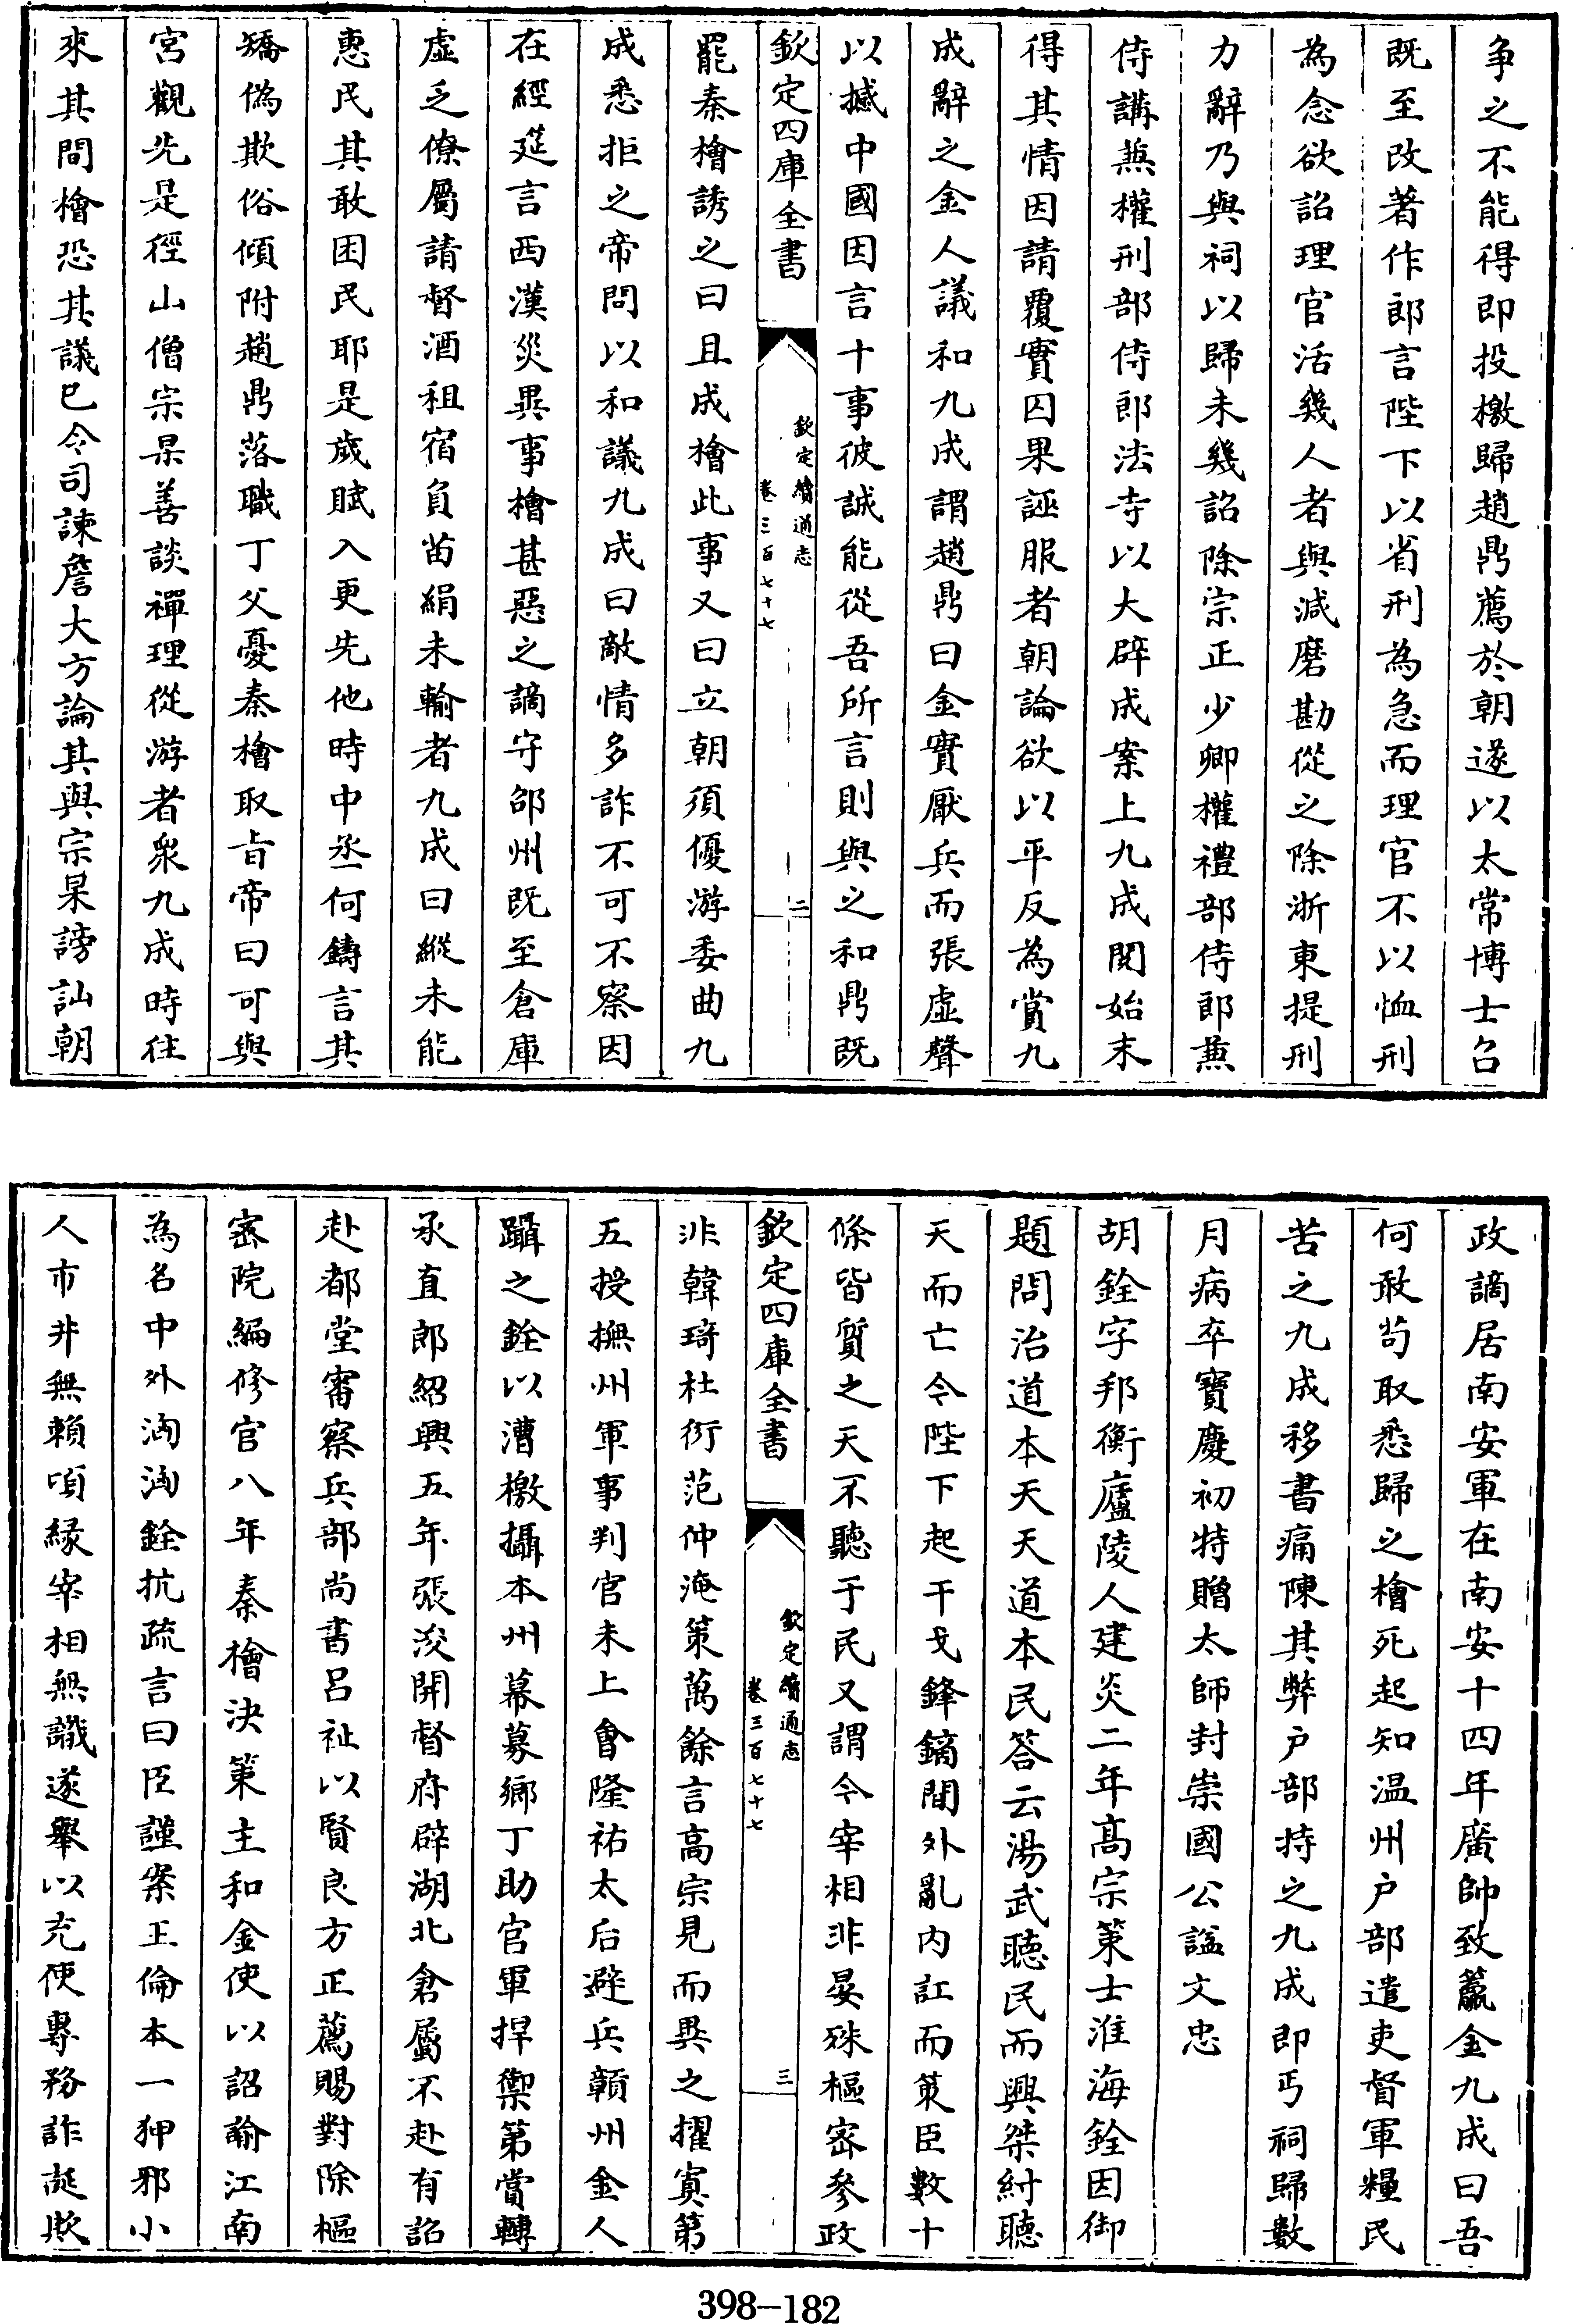 争之不能得即投檄歸趙鼎薦於朝遂以太常博士召
既至改著作郎言陛下以省刑為急而理官不以恤刑
為念欲詔理官活幾人者與減磨勘從之除浙東提刑
力辭乃與祠以歸未幾詔除宗正少卿權禮部侍郎兼
侍講兼權刑部侍郎法寺以大辟成案上九成閱始末
得其情因請覆實囚果誣服者朝論欲以平反為賞九
成辭之金人議和九成謂趙鼎曰金實厭兵而張虛聲
以撼中國因言十事彼誠能從吾所言則與之和鼎既
欽定四庫全書
欽定續通志
卷三百七十七
二
罷秦檜誘之曰且成檜此事又曰立朝須優游委曲九
成悉拒之帝問以和議九成曰敵情多詐不可不察因
在經筵言西漢災異事檜甚惡之謫守邵州既至倉庫
虛乏僚屬請督酒租宿負苗絹未輸者九成曰縱未能
惠民其敢困民耶是歲賦入更先他時中丞何鑄言其
矯偽欺俗傾附趙鼎落職丁父憂秦檜取旨帝曰可與
宮觀先是徑山僧宗杲善談禪理從游者衆九成時往
來其間檜恐其議已令司諫詹大方論其與宗杲謗訕朝
政謫居南安軍在南安十四年廣帥致籯金九成曰吾
何敢茍取悉歸之檜死起知温州户部遣吏督軍糧民
苦之九成移書痛陳其弊户部持之九成即丐祠歸數
月病卒寶慶初特贈太師封崇國公諡文忠
胡銓字邦衡廬陵人建炎二年髙宗策士淮海銓因御
題問治道本天天道本民答云湯武聽民而興桀紂聽
天而亡今陛下起干戈鋒鏑間外亂内訌而策臣數十
條皆質之天不聽于民又謂今宰相非晏殊樞密參政
欽定四庫全書
欽定續通志
卷三百七十七
三
非韓琦杜衍范仲淹策萬餘言高宗見而異之擢寘第
五授撫州軍事判官未上會隆祐太后避兵贑州金人
躡之銓以漕檄攝本州幕募鄉丁助官軍捍禦第賞轉
承直郎紹興五年張浚開督府辟湖北倉屬不赴有詔
赴都堂審察兵部尚書呂祉以賢良方正薦賜對除樞
密院編修官八年秦檜決策主和金使以詔諭江南
為名中外洶洶銓抗疏言曰臣謹案王倫本一狎邪小
人市井無賴頃緣宰相無識遂舉以充使專務詐誕欺
398-182